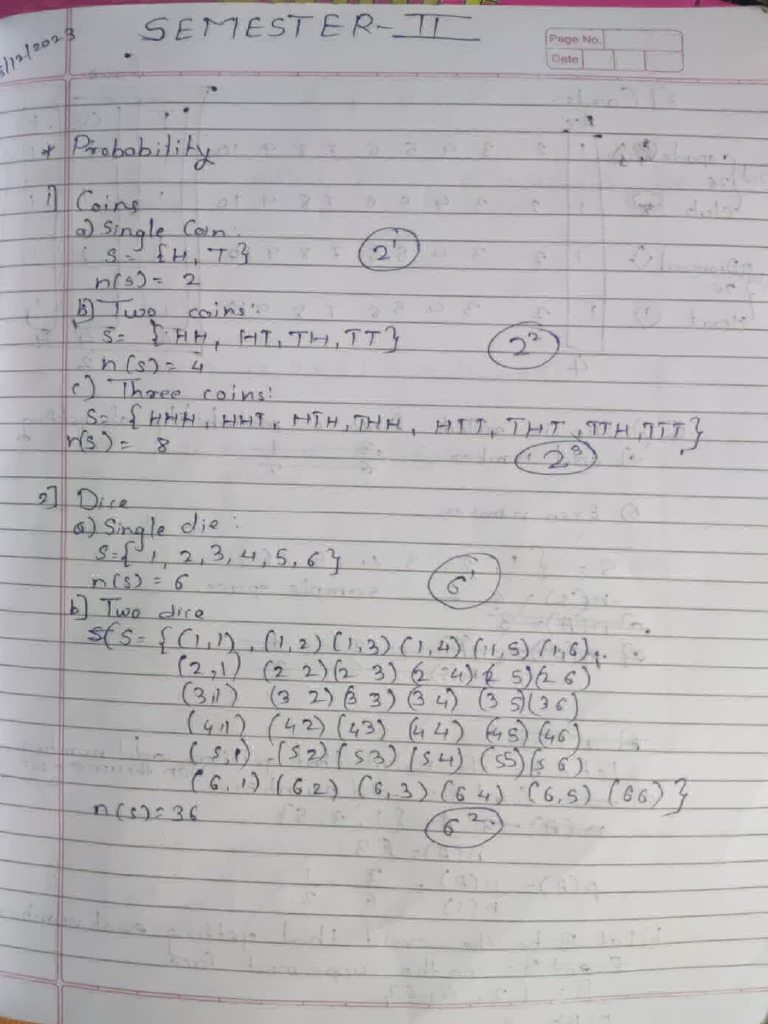 SEMESTER-II
Page No.
Date
/12/2023
* Probability
1] Coins
a) Single Coin:
S = {H, T} 2¹
n(s) = 2
b) Two coins:
S = {HH, HT, TH, TT} 2²
n(s) = 4
c) Three coins:
S = {HHH, HHT, HTH, THH, HTT, THT, TTH, TTT}
n(s) = 8 2³
2] Dice
a) Single die:
S={1, 2, 3, 4, 5, 6}
n(s) = 6 6¹
b] Two dice
S = {(1,1), (1,2) (1,3) (1,4) (1,5) (1,6),
(2,1) (2 2) (2 3) (2 4) (2 5) (2 6)
(3,1) (3 2) (3 3) (3 4) (3 5) (3 6)
(4,1) (4 2) (4 3) (4 4) (4 5) (4 6)
(5,1) (5 2) (5 3) (5 4) (5 5) (5 6)
(6,1) (6,2) (6,3) (6 4) (6,5) (6 6)}
n(s) = 36 6²